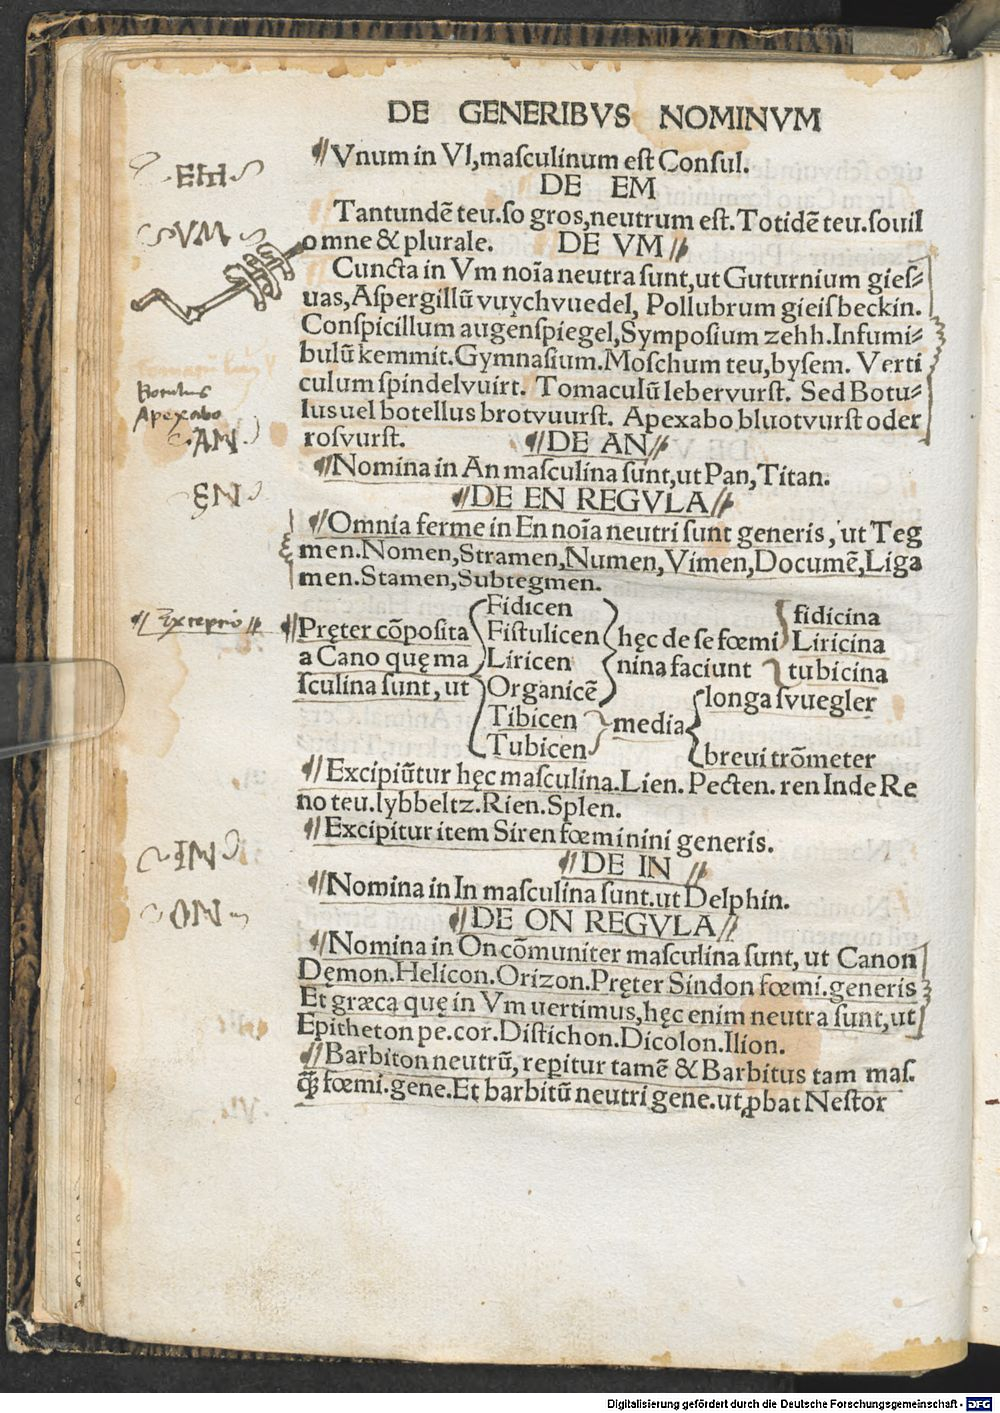 DE GENERIBVS NOMINVM
Vnum in Vl, masculinum est Consul.
EM
DE EM
Tantundē teu. so gros, neutrum est. Totidē teu. souil
VM
omne & plurale. DE VM
Cuncta in Vm noīa neutra sunt, ut Guturnium gies-
uas, Aspergillū vuychvuedel, Pollubrum gieisbeckin.
Conspicillum augenspiegel, Symposium zehh. Infumi-
bulū kemmit. Gymnasium. Moschum teu, bysem. Verti
Botulus
culum spindelvuirt. Tomaculū lebervurst. Sed Botu-
Apexabo
lus uel botellus brotvuurst. Apexabo bluotvurst oder
AN
rosvurst. DE AN
Nomina in An masculina sunt, ut Pan, Titan.
EN
DE EN REGVLA
Omnia ferme in En noīa neutri sunt generis, ut Teg
men. Nomen, Stramen, Numen, Vimen, Documē, Liga
men. Stamen, Subtegmen.
Exceptio
Pręter cōposita
a Cano quę ma
sculina sunt, ut
Fidicen
Fistulicen
Liricen
Organicē
Tibicen
Tubicen
hęc de se fœmi
nina faciunt
fidicina
Liricina
tubicina
media
longa svuegler
breui trōmeter
Excipiūtur hęc masculina. Lien. Pecten. ren Inde Re
no teu. lybbeltz. Rien. Splen.
Excipitur item Siren fœminini generis.
IN
DE IN
Nomina in In masculina sunt. ut Delphin.
ON
DE ON REGVLA
Nomina in On cōmuniter masculina sunt, ut Canon
Dęmon. Helicon. Orizon. Pręter Sindon fœmi. generis
Et græca quę in Vm uertimus, hęc enim neutra sunt, ut
Epitheton pe. cor. Distichon. Dicolon. Ilion.
Barbiton neutrū, reꝑitur tamē & Barbitus tam mas.
q̄ꝫ fœmi. gene. Et barbitū neutri gene. ut ꝓbat Nestor
Digitalisierung gefördert durch die Deutsche Forschungsgemeinschaft - DFG